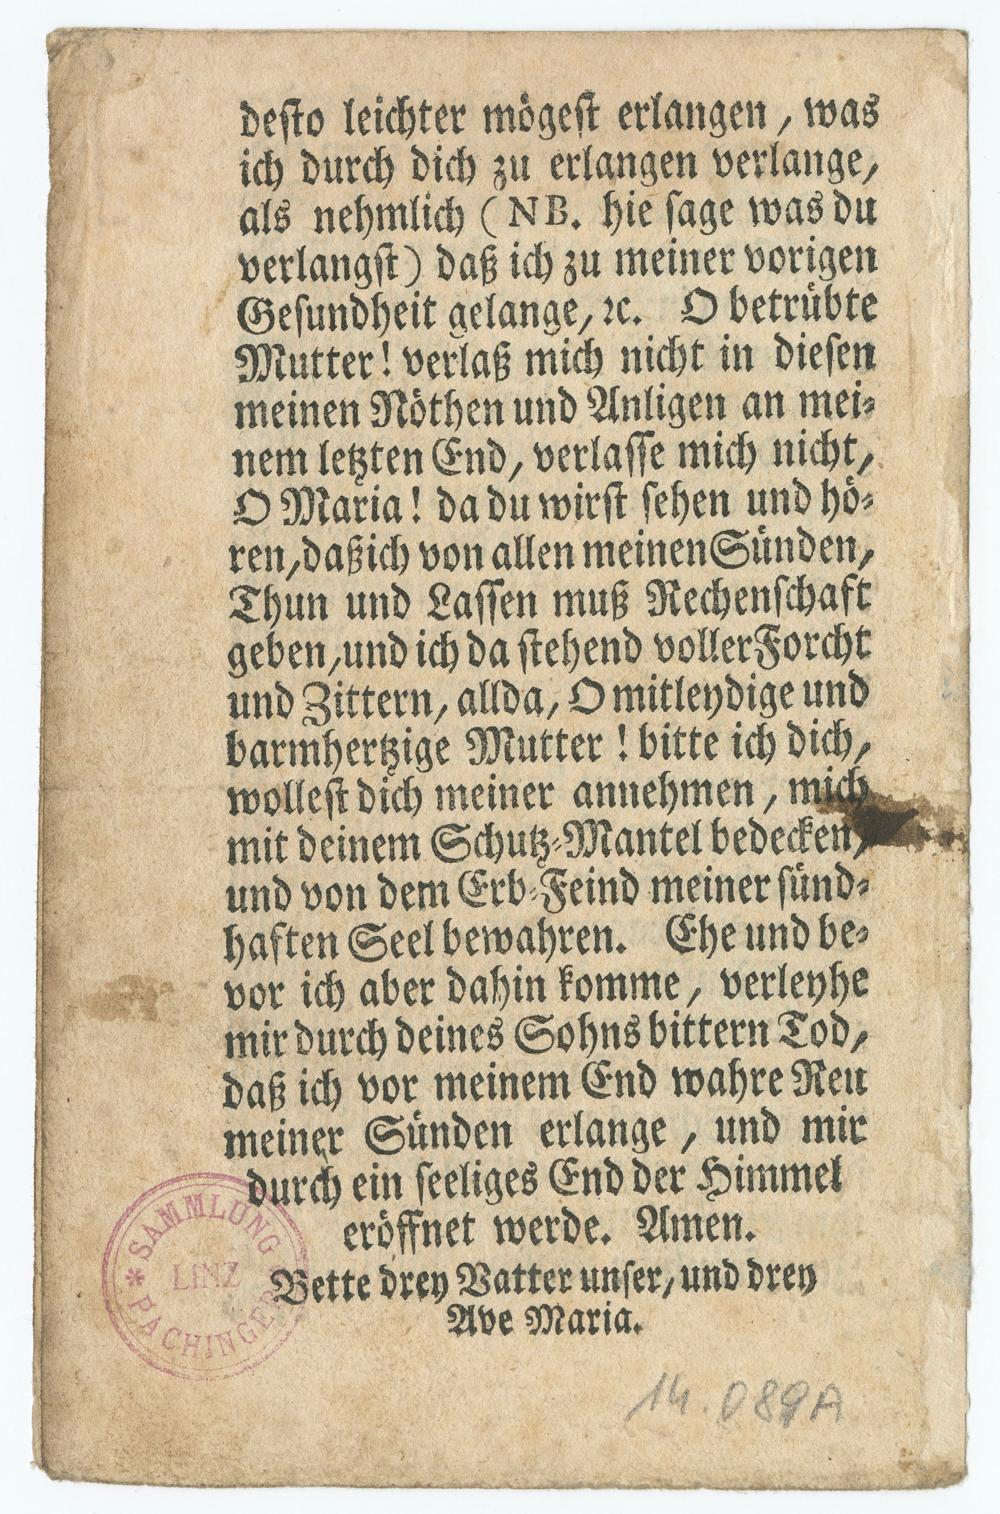 desto leichter mögest erlangen, was
ich durch dich zu erlangen verlange,
als nehmlich (NB. hie sage was du
verlangst) daß ich zu meiner vorigen
Gesundheit gelange, ꝛc. O betrübte
Mutter! verlaß mich nicht in diesen
meinen Nöthen und Anligen an mei⸗
nem letzten End, verlasse mich nicht,
O Maria! da du wirst sehen und hö⸗
ren, daß ich von allen meinen Sünden,
Thun und Lassen muß Rechenschaft
geben, und ich da stehend voller Forcht
und Zittern, allda, O mitleydige und
barmhertzige Mutter! bitte ich dich,
wollest dich meiner annehmen, mich
mit deinem Schutz⸗Mantel bedecken,
und von dem Erb⸗Feind meiner sünd⸗
haften Seel bewahren. Ehe und be⸗
vor ich aber dahin komme, verleyhe
mir durch deines Sohns bittern Tod,
daß ich vor meinem End wahre Reu
meiner Sünden erlange, und mir
durch ein seeliges End der Himmel
eröffnet werde. Amen.
Bette drey Vatter unser, und drey
Ave Maria.
* SAMMLUNG PACHINGER
LINZ
14.089A